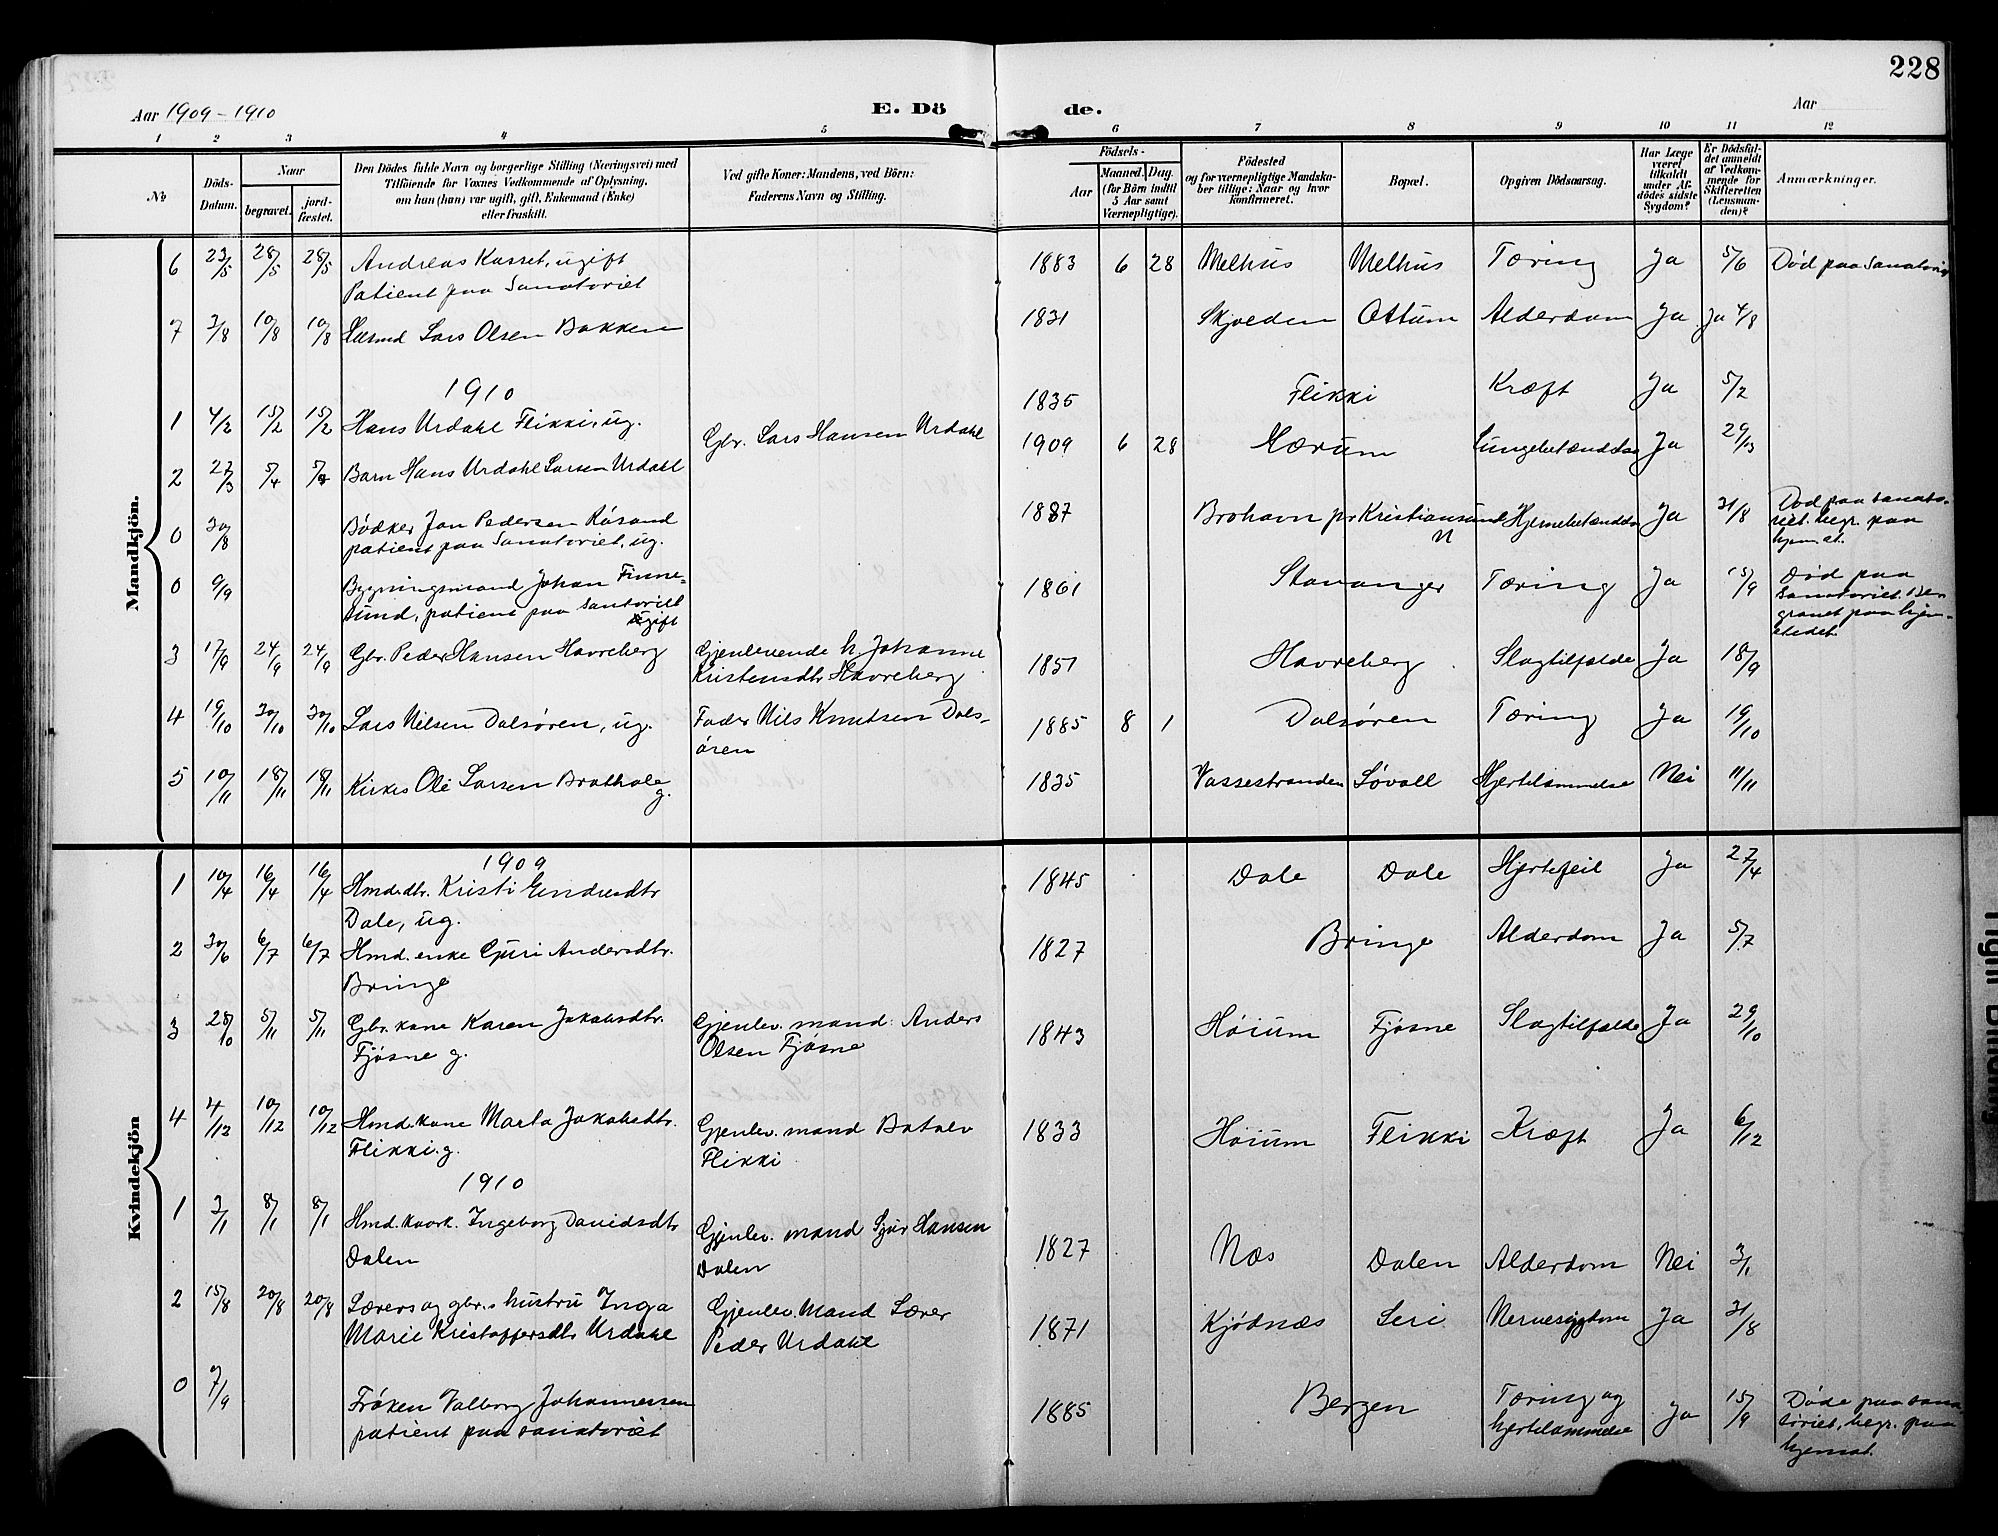 228
Aar 1909-1910
E. Dö
de.
Aar
1 2 3 4 5 6 7 8 9 10 11 12
No
Döds-
Datum.
Naar
begravet.
jord-
fæstet.
Den Dödes fulde Navn og borgerlige Stilling (Næringsvei) med
Tilföiende for Voxnes Vedkommende af Oplysning,
om han (hun) var ugift, gift, Enkemand (Enke)
eller fraskilt.
Ved gifte Koner: Mandens, ved Börn:
Faderens Navn og Stilling.
Födsels-
Aar
Maaned. Dag.
(for Börn indtil
5 Aar samt
Værnepligtige).
Födested
og for værnepligtige Mandska-
ber tillige: Naar og hvor
konfirmeret.
Bopæl.
Opgiven Dödsaarsag.
Har Læge
været
tilkaldt
under Af-
dödes sidste
Sygdom?
Er Dödsfal-
det anmeldt
af Vedkom-
mende for
Skifteretten
(Lensman-
den)?
Anmærkninger.
Mandkjön.
6 23/5 28/5 28/5 Andreas Kasset, ugift 1883 6 28 Melhus Melhus Tæring Ja 5/6 Død paa Sanatoriet
Patient paa Sanatoriet
7 3/8 10/8 10/8 Husmd Lars Olsen Bakken 1831 Skjolden Ottum Alderdom Ja Ja 4/8
1910
1 4/2 15/2 15/2 Hans Urdahl Flikki, ug. 1835 Flikki Kræft Ja 5/2
2 27/3 5/4 5/4 Barn Hans Urdahl Larsen Urdahl Gbr. Lars Hansen Urdahl 1909 6 28 Hærum Lungebetændelse Ja 29/3
0 30/8 Bødker Jan Pedersen Røsand 1887 Brohavn pr Kristiansund Hjernebetændelse Ja 31/8 Død paa sanato-
patient paa Sanatoriet, ug. N riet. begr. paa
hjemst.
0 9/9 Bygningsmand Johan Finne- 1861 Stavanger Tæring Ja 15/9 Død paa
sund, patient paa sanatoriet Sanatoriet. Be-
ugift gravet paa hjem-
stedet
3 17/9 24/9 24/9 Gbr. Peder Hansen Havreberg Gjenlevende h. Johanne 1851 Havreberg Slagtilfælde Ja 18/9
Kristensdtr Havreberg
4 19/10 30/10 30/10 Lars Nilsen Dalsøren, ug. Fader Nils Knutsen Dals- 1885 8 1 Dalsøren Tæring Ja 19/10
øren
5 10/11 18/11 18/11 Kirkes Ole Larsen Brathole 1835 Vassestranden Søvoll Hjertelammelse Nei 11/11
g.
Kvindekjön
1909
1 10/4 16/4 16/4 Hmdsdtr. Kristi Endresdtr 1845 Dale Dale Hjertefeil Ja 27/4
Dale, ug.
2 30/6 6/7 6/7 Hmd. enke Guri Andersdtr. 1827 Bringe Alderdom Ja 5/7
Bringe
3 28/10 5/11 5/11 Gbr. kone Karen Jakobsdtr. Gjenlev. mand: Anders 1843 Høium Fjøsne Slagtilfælde Ja 29/10
Fjøsne g. Olsen Fjøsne
4 4/12 10/12 10/12 Hmd. kone Marta Jakobsdtr. Gjenlev. mand Botolv 1833 Høium Flikki Kræft Ja 6/12
Flikki. g. Flikki
1910
1 3/1 8/1 8/1 Hmd. Ingeborg Davidsdtr Gjenlev. mand Sjur Hansen 1827 Næs Dalen Alderdom Nei 3/1
Dalen Dalen
2 15/8 20/8 20/8 Lærers og gbr.s hustru Inga Gjenlev. Mand Lærer 1871 Kjødnæs Leri Nervesygdom Ja 31/8
Marie Kristoffersdtr Urdahl Peder Urdahl
0 7/9 Frøken Valborg Johannessen 1885 Bergen Tæring og Ja 15/9 Døde paa sana-
patient paa sanatoriet hjertelammelse toriet, begr. paa
hjemst.